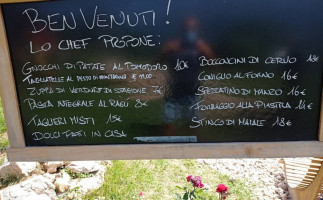 BENVENUTI!
LO CHEF PROPONE:
GNOCCHI DI PATATE AL POMODORO 10€
TAGLIATELLE AL PESTO DI 11,00
ZUPPA DI VERDURE DI STAGIONE 7€
PASTA INTEGRALE AL RAGÙ 8€
TAGLIERI MISTI 15€
DOLCI FATTI IN CASA
BOCCONCINI DI CERVO 18€
CONIGLIO AL FORNO 16€
SPEZZATINO DI MANZO 16€
FORMAGGIO ALLA PIASTRA 14€
STINCO DI MAIALE 18€